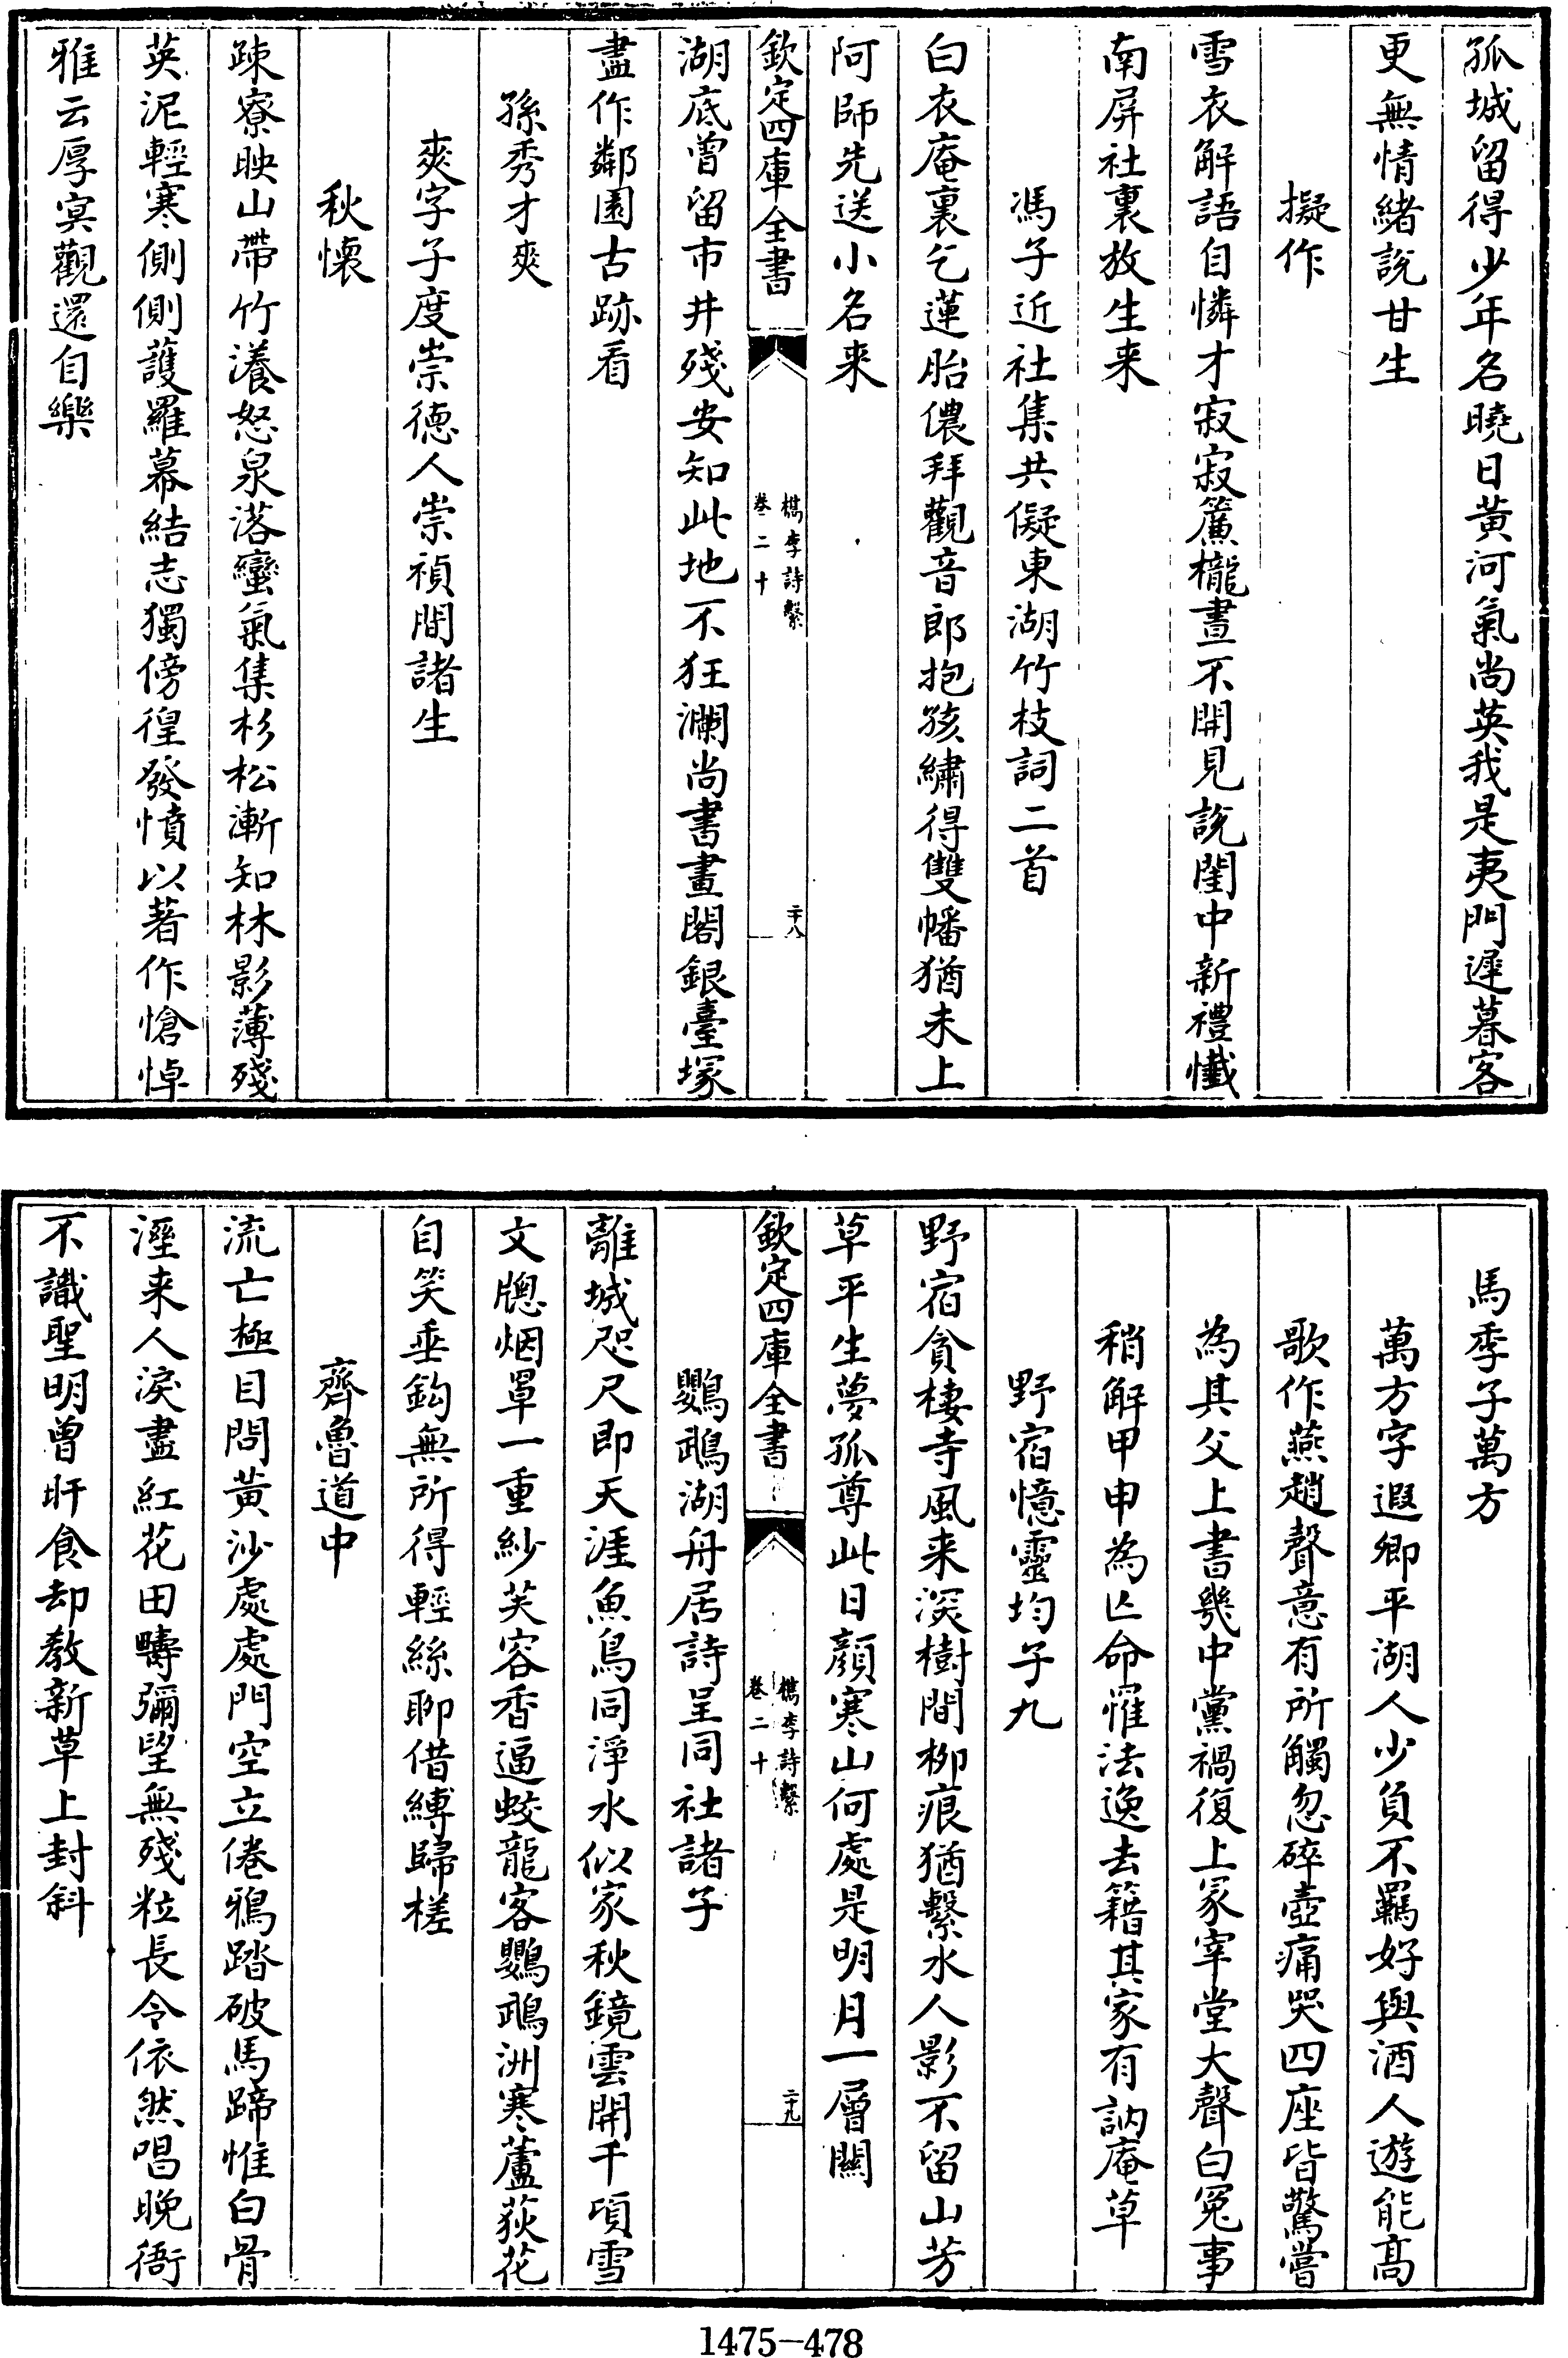 孤城留得少年名曉日黄河氣尚英我是夷門遲暮客
更無情緒説甘生
擬作
雪衣解語自憐才寂寂簾櫳晝不開見説閨中新禮懴
南屏社裏放生来
馮子近社集共儗東湖竹枝詞二首
白衣庵裏乞蓮胎儂拜觀音郎抱孩繡得雙幡猶未上
阿師先送小名来
欽定四庫全書
檇李詩繫
卷二十
二十八
湖底曾留市井殘安知此地不狂瀾尚書畫閣銀臺塚
盡作鄰園古跡看
孫秀才爽
爽字子度崇德人崇禎間諸生
秋懷
疎寮映山帶竹瀁怒泉落蠻氣集杉松漸知林影薄殘
英泥輕寒側側護羅幕結志獨傍徨發憤以著作愴悼
雅云厚㝠觀還自樂
馬季子萬方
萬方字遐卿平湖人少負不羈好與酒人遊能髙
歌作燕趙聲意有所觸忽碎壺痛哭四座皆驚嘗
為其父上書幾中黨禍復上冢宰堂大聲白寃事
稍解甲申為亾命罹法逸去籍其家有訥庵草
野宿憶靈均子九
野宿貪棲寺風来深樹間柳痕猶繫水人影不留山芳
草平生夢孤尊此日顔寒山何處是明月一層關
欽定四庫全書
檇李詩繫
卷二十
二十九
鸚鵡湖舟居詩呈同社諸子
離城咫尺即天涯魚鳥同淨水似家秋鏡雲開千頃雪
文牕烟罩一重紗芙容香逼蛟龍客鸚鵡洲寒蘆荻花
自笑垂鈎無所得輕絲聊借縛歸槎
齊魯道中
流亡極目問黄沙處處門空立倦鴉踏破馬蹄惟白骨
溼来人淚盡紅花田疇彌望無殘粒長令依然唱晚衙
不識聖明曾旰食却教新草上封斜
1475-478